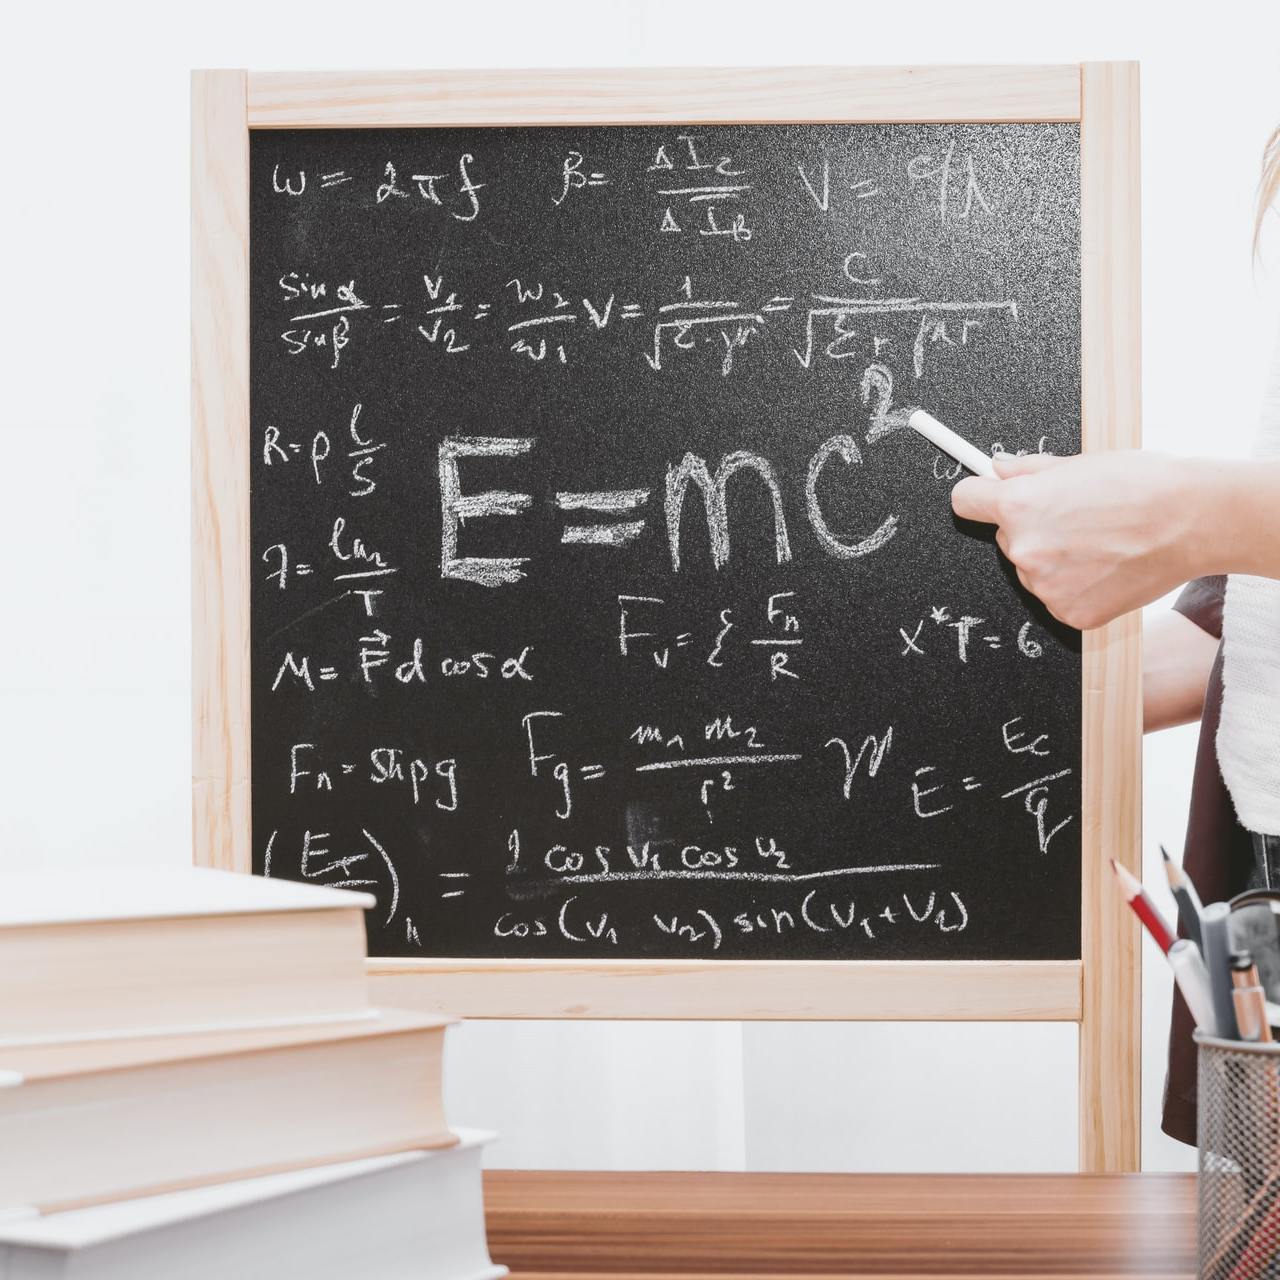 ω = 2πf β = ΔI_C / ΔI_B V = c/λ
sin α / sin β = v₁ / v₂ = w₂ / w₁ V = 1 / √(ε·μ) = c / √(ε_r μ_r)
R = ρ l / S
E = mc²
M = F⃗ d cos α
F_v = { F_n / R
x*T = 6
F_n = Shρg
F_g = m₁ m₂ / r²
E = E_c / q
( E_T )_∥ = 2 cos v₁ cos v₂ / cos(v₁ v₂) sin(v₁ + v₂)